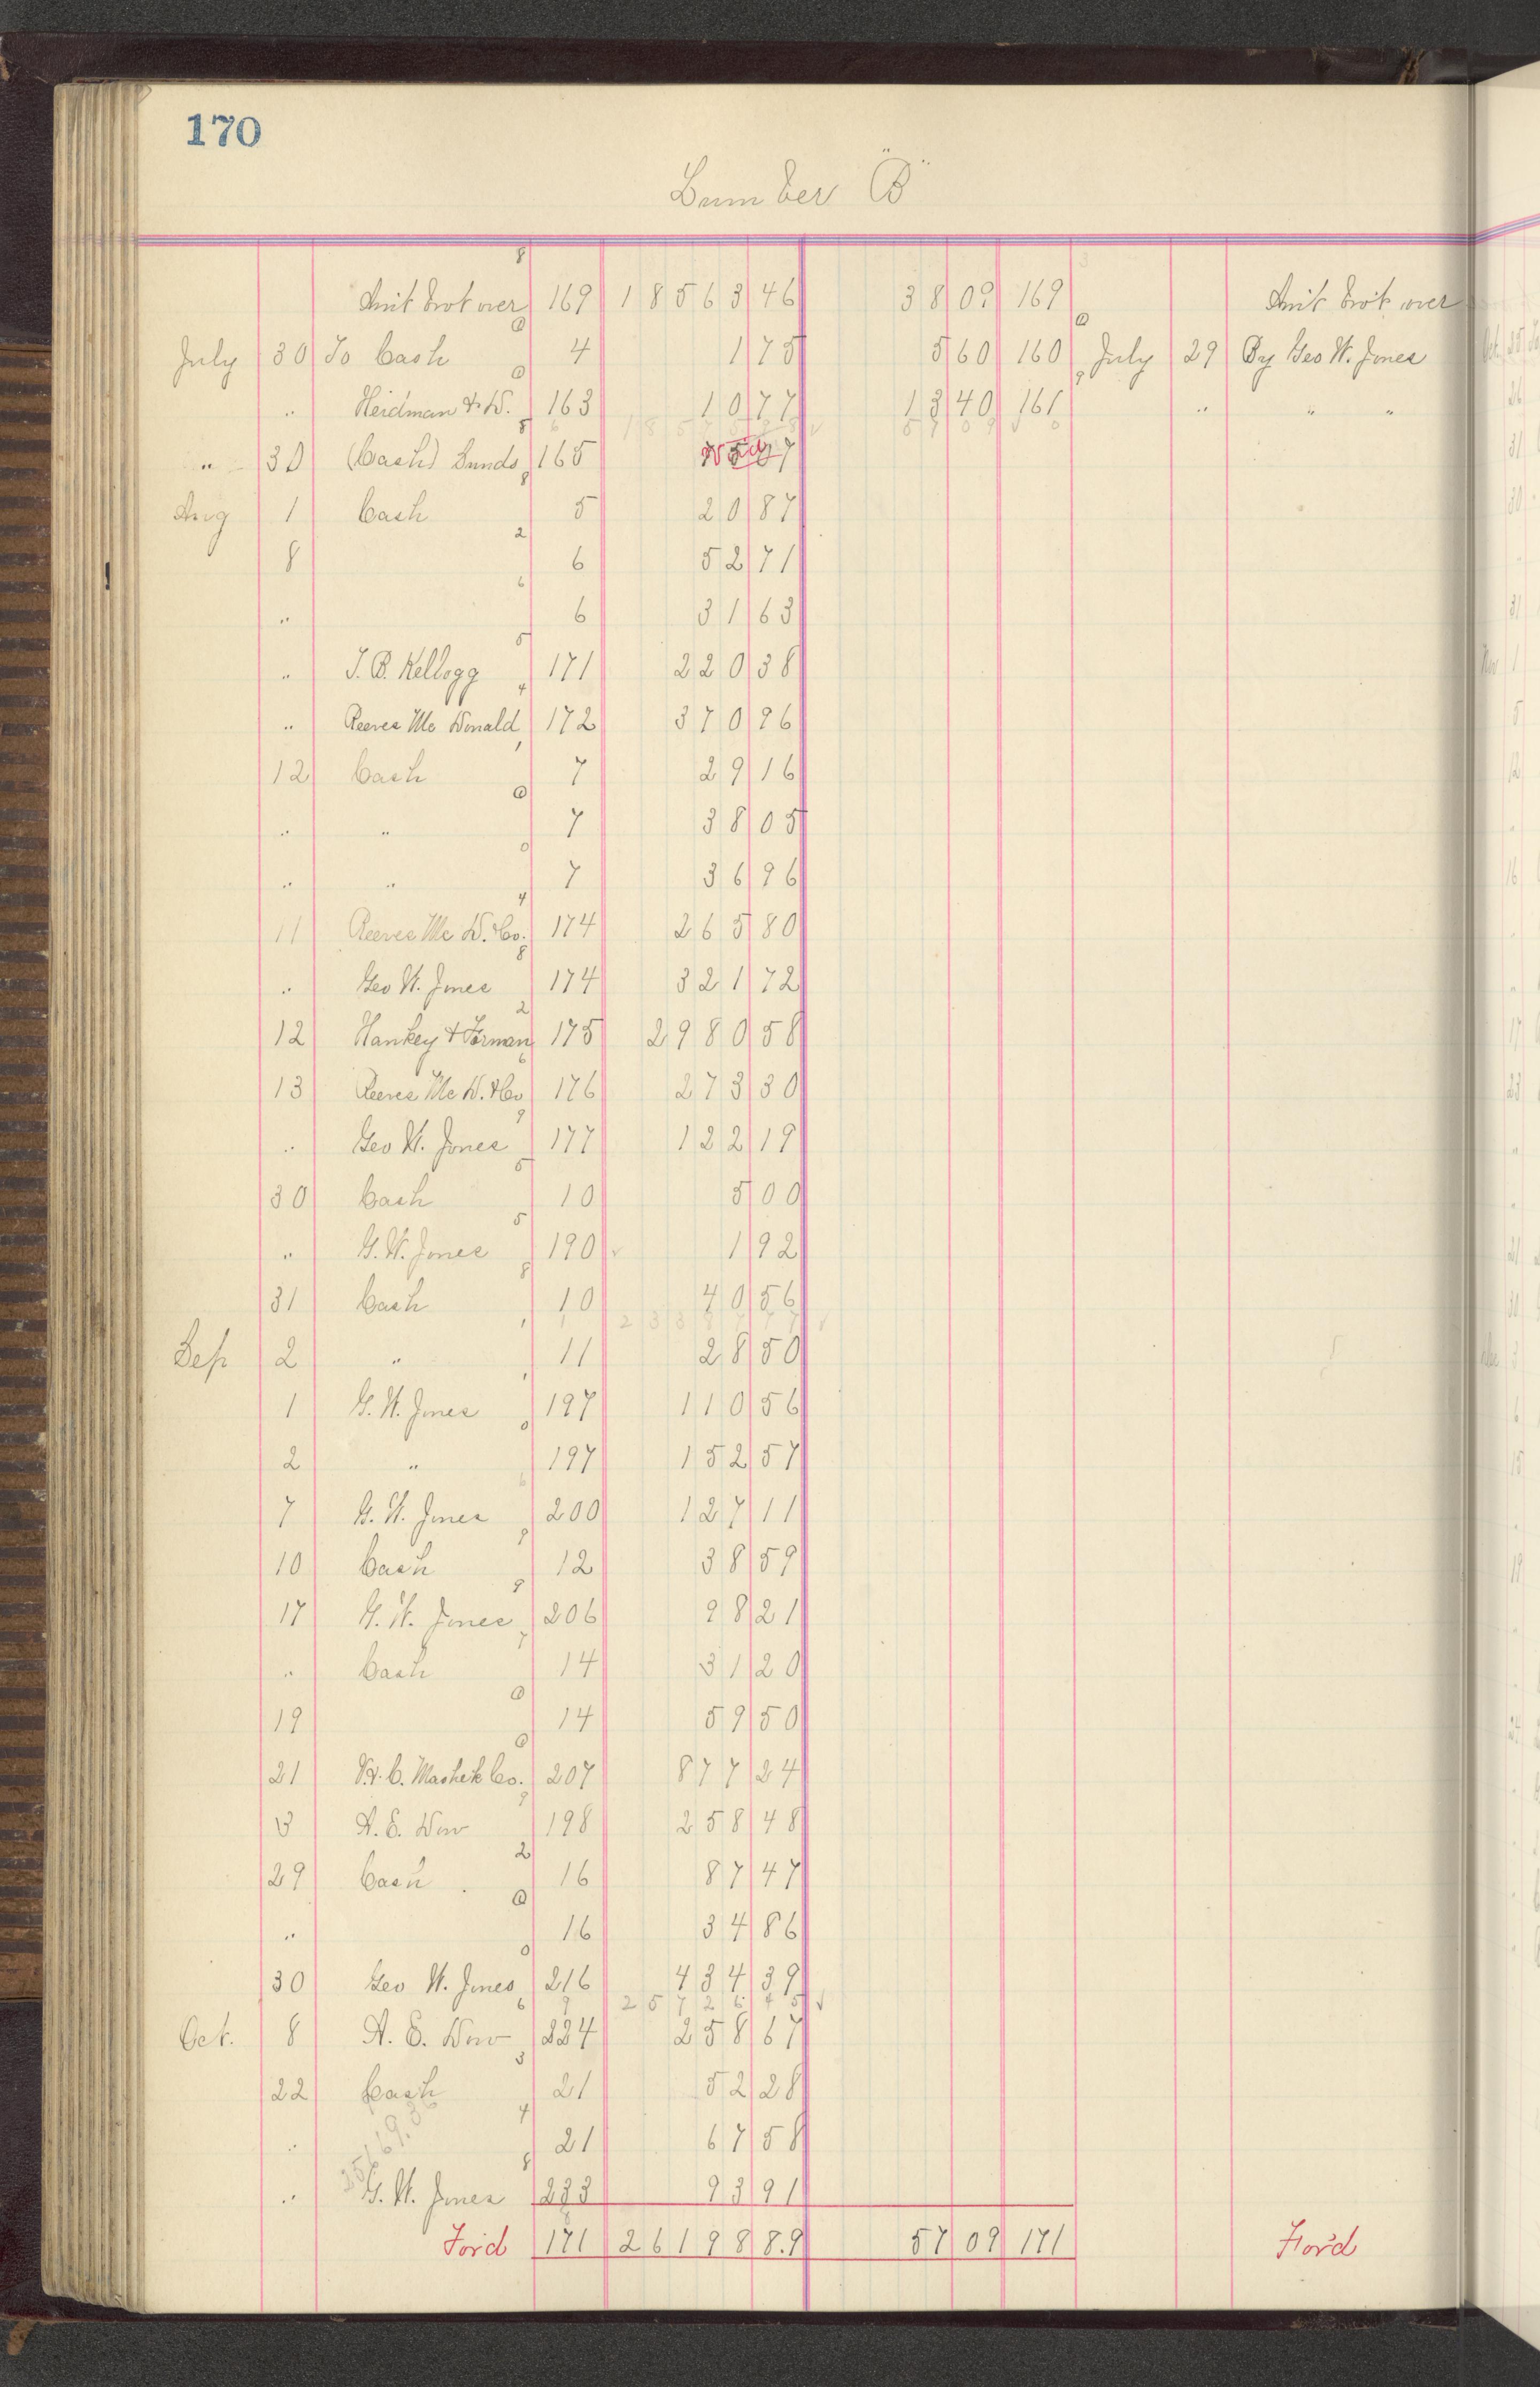 170
Lumber "B"
Amt brot over 169 18563 46 38 09 169 Amt brot over
July 30 To Cash 4 1 75 5 60 160 July 29 By Geo W. Jones
" Heidman & D. 163 10 77 13 40 161 " " "
" 30 (Cash) Sunds 165 Void
Aug 1 Cash 5 20 87
8 6 52 71
" 6 31 63
" J. B. Kellogg 171 220 38
" Reeves Mc Donald 172 370 96
12 Cash 7 29 16
" " 7 38 05
" " 7 36 96
11 Reeves Mc D. & Co. 174 265 80
" Geo W. Jones 174 321 72
12 Hankey & Forman 175 2980 58
13 Reeves Mc D. & Co 176 273 30
" Geo W. Jones 177 122 19
30 Cash 10 5 00
" G. W. Jones 190 1 92
31 Cash 10 40 56
Sep 2 " 11 28 50
1 G. W. Jones 197 110 56
2 " 197 152 57
7 G. W. Jones 200 127 11
10 Cash 12 38 59
17 G. W. Jones 206 98 21
" Cash 14 31 20
19 14 59 50
21 V. C. Mashek Co. 207 877 24
3 A. E. Dow 198 258 48
29 Cash 16 87 47
" 16 34 86
30 Geo W. Jones 216 434 39
2 5 7 2 6 4 5
Oct. 8 A. E. Dow 224 258 67
22 Cash 21 52 28
" 21 67 58
" G. W. Jones 233 93 91
For'd 171 26198 8.9 57 09 171 For'd